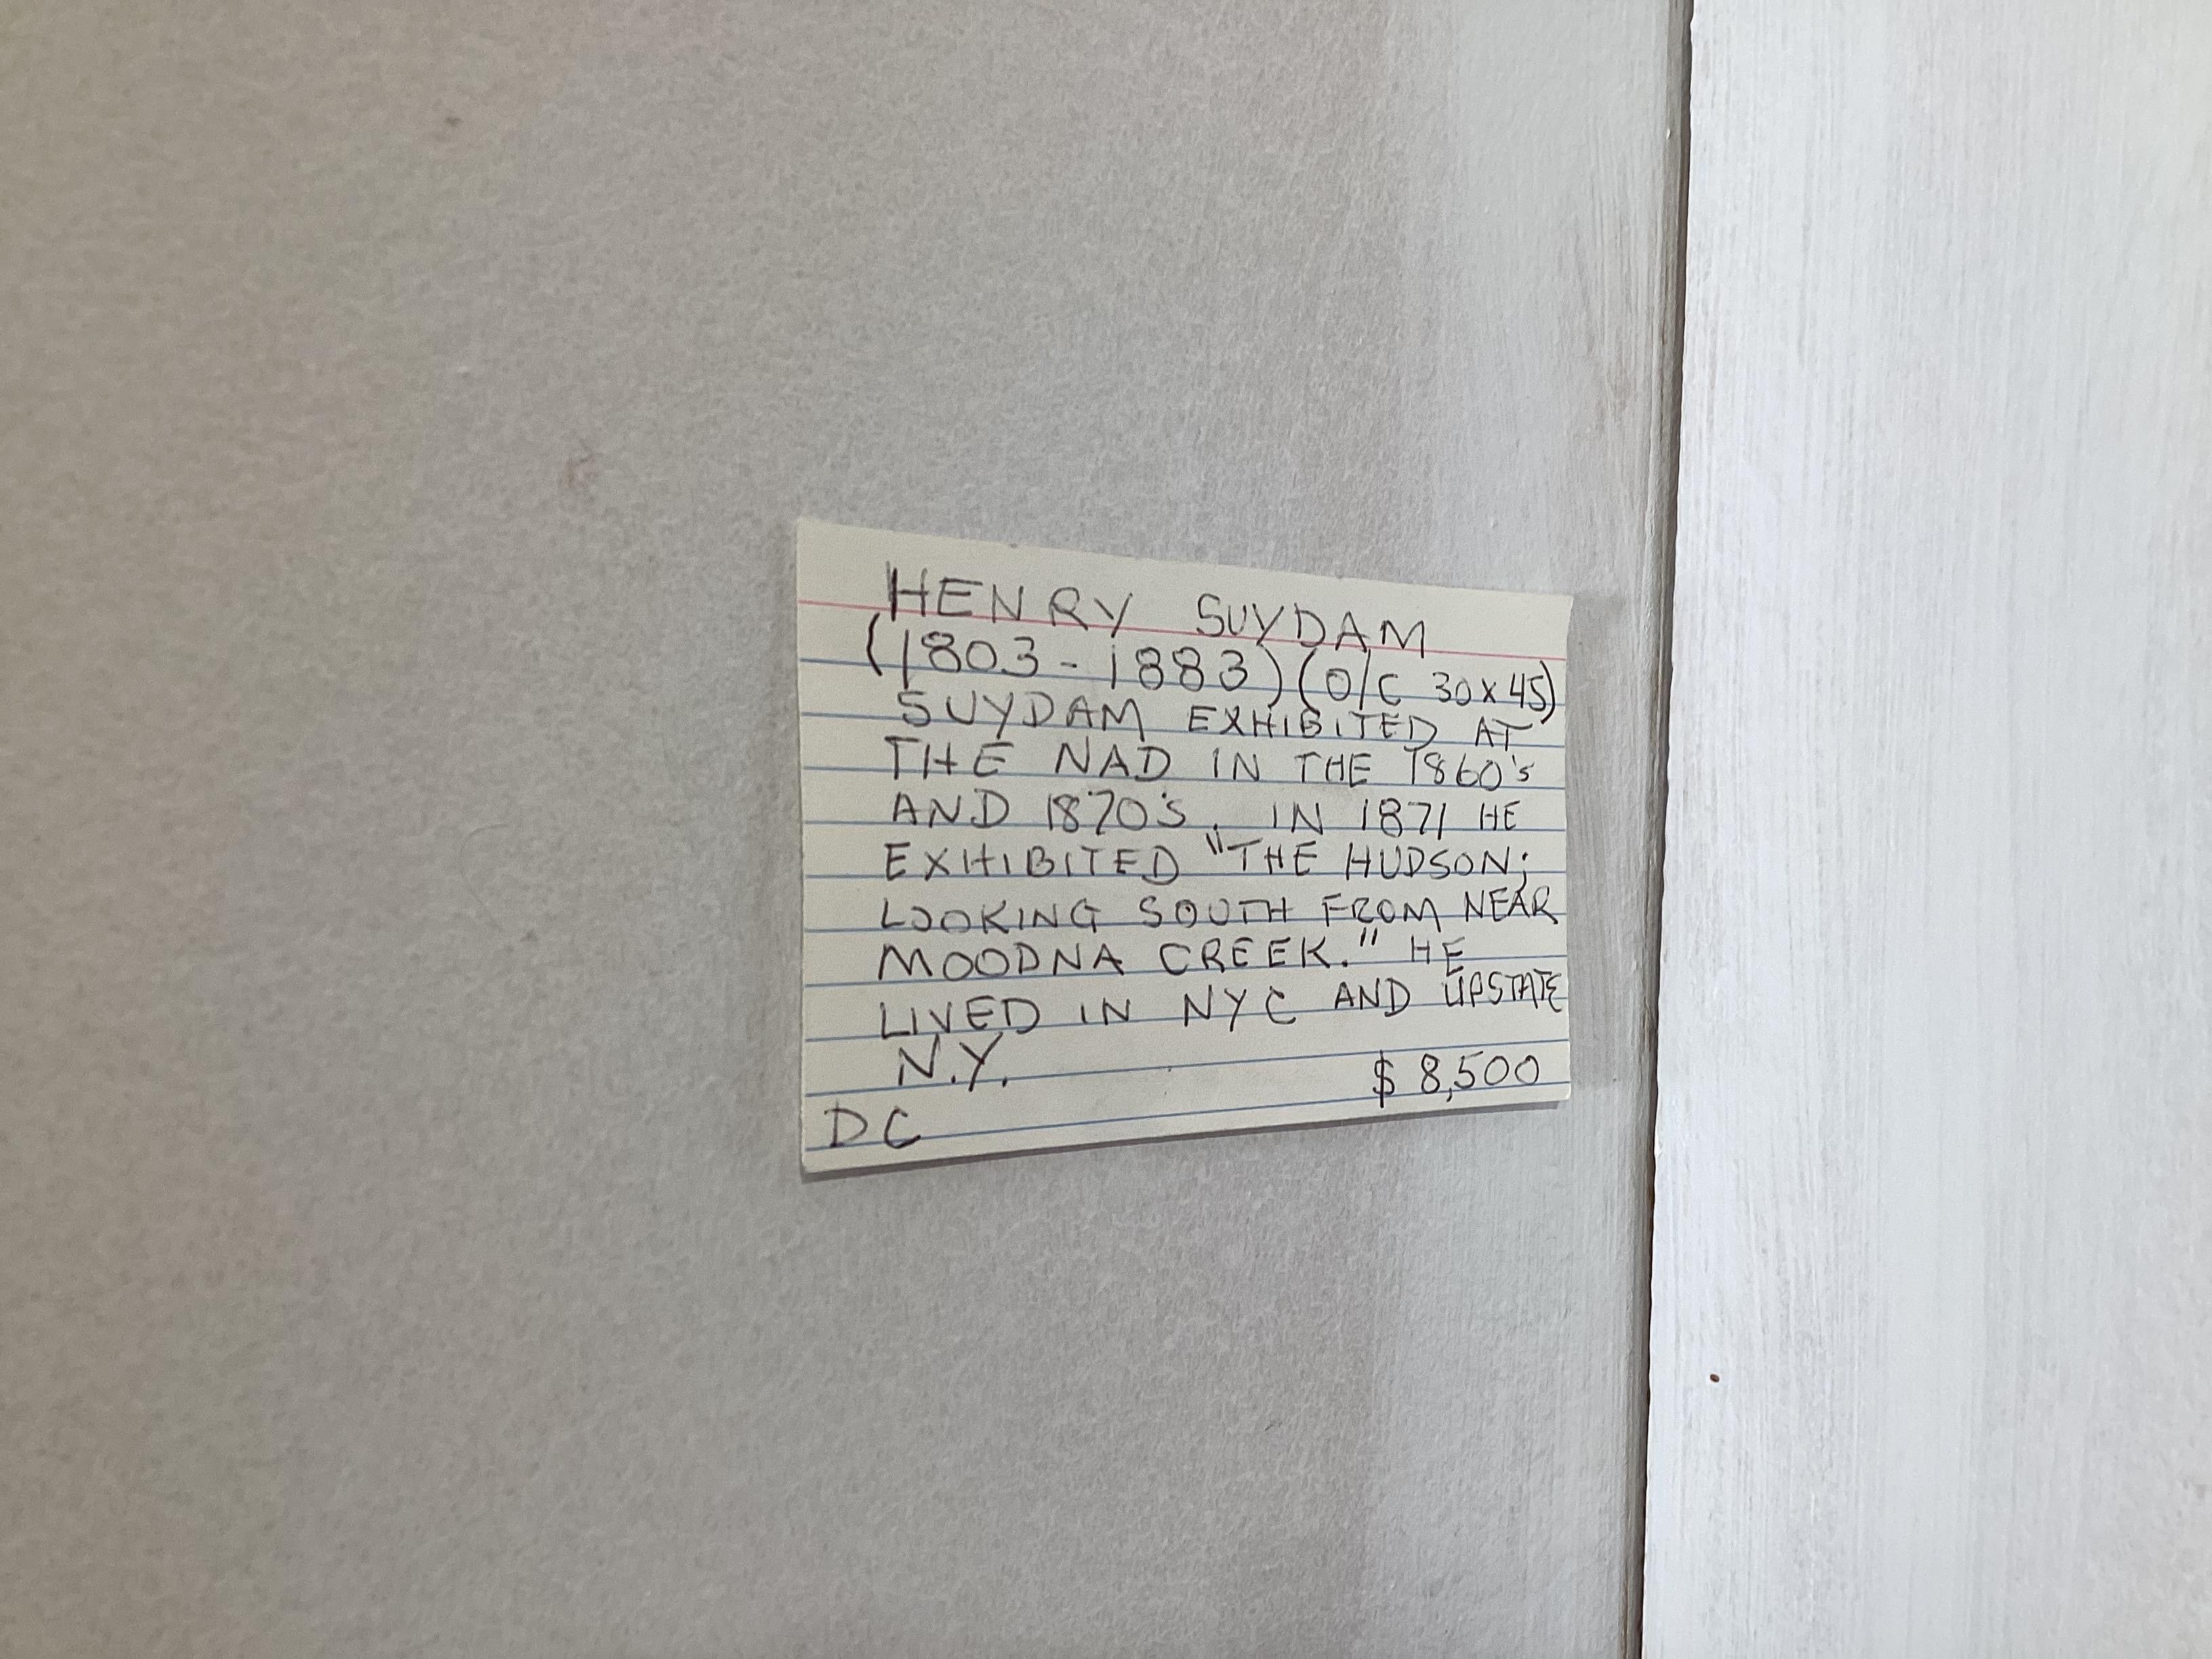 HENRY SUYDAM
(1803-1883) (O/C 30x45)
SUYDAM EXHIBITED AT
THE NAD IN THE 1860's
AND 1870's. IN 1871 HE
EXHIBITED "THE HUDSON;
LOOKING SOUTH FROM NEAR
MOODNA CREEK." HE
LIVED IN NYC AND UPSTATE
N.Y. $8,500
DC